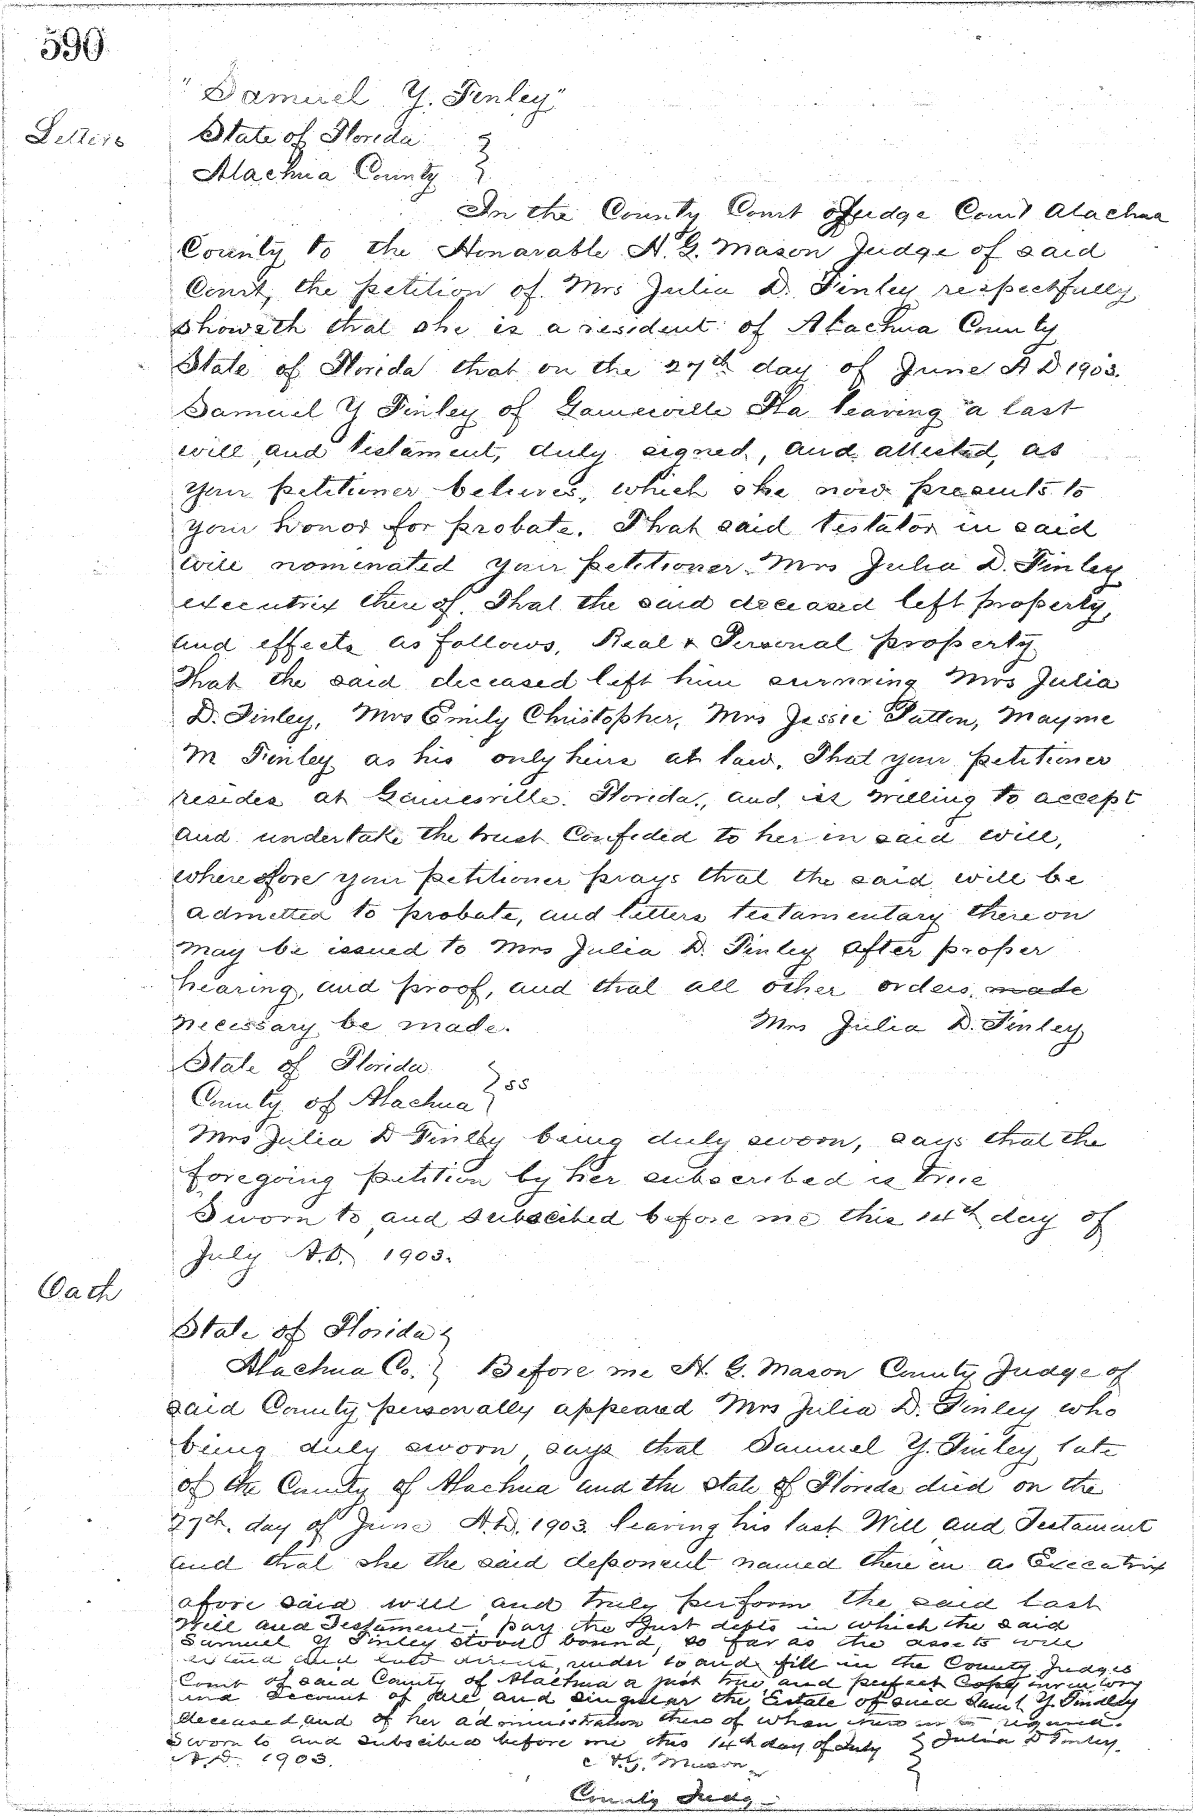 590
"Samuel Y. Finley"
Letters
State of Florida }
Alachua County }
In the County Court of Judge Court Alachua
County to the Honarable H. G. Mason Judge of said
Court, the petition of Mrs Julia D. Finley respectfully
showeth that she is a resident of Alachua County
State of Florida that on the 27th day of June A D 1903.
Samuel Y Finley of Gainesville Fla leaving a last
will and testament, duly signed, and attested, as
your petitioner believes, which she now presents to
your honor for probate. That said testator in said
will nominated your petitioner Mrs Julia D. Finley
executrix there of. That the said deceased left property,
and effects as follows, Real & Personal property
That the said deceased left him surviving Mrs Julia
D. Finley, Mrs Emily Christopher, Mrs Jessie Patton, Mayme
M Finley as his only heirs at law. That your petitioner
resides at Gainesville. Florida, and is willing to accept
and undertake the trust Confided to her in said will,
wherefore your petitioner prays that the said will be
admitted to probate, and letters testamentary there on
may be issued to Mrs Julia D. Finley after proper
hearing, and proof, and that all other orders made
necessary be made. Mrs Julia D. Finley
State of Florida }
County of Alachua } ss
Mrs Julia D Finley being duly sworn, says that the
foregoing petition by her subscribed is true
Sworn to and subscibed before me this 14th day of
July A.D. 1903.
Oath
State of Florida }
Alachua Co. } Before me H. G. Mason County Judge of
said County personally appeared Mrs Julia D. Finley who
being duly sworn, says that Samuel Y. Finley late
of the County of Alachua and the state of Florida died on the
27th. day of June A.D. 1903 leaving his last Will and Testament
and that she the said deponent named there in as Executrix
afore said will and truly perform the said last
Will and Testament, pay the Just depts in which the said
Samuel Y Finley stood bound, so far as the assets will
extend and law under to and fill in the County Judges
Court of said County of Alachua a just true and perfect Copy inventory
and account of all and singular the Estate of said Saml Y Findley
deceased, and of her administration there of when required.
Sworn to and subscibed before me this 14th day of July } Julia D Finley.
A.D. 1903. H. G. Mason
County Judg